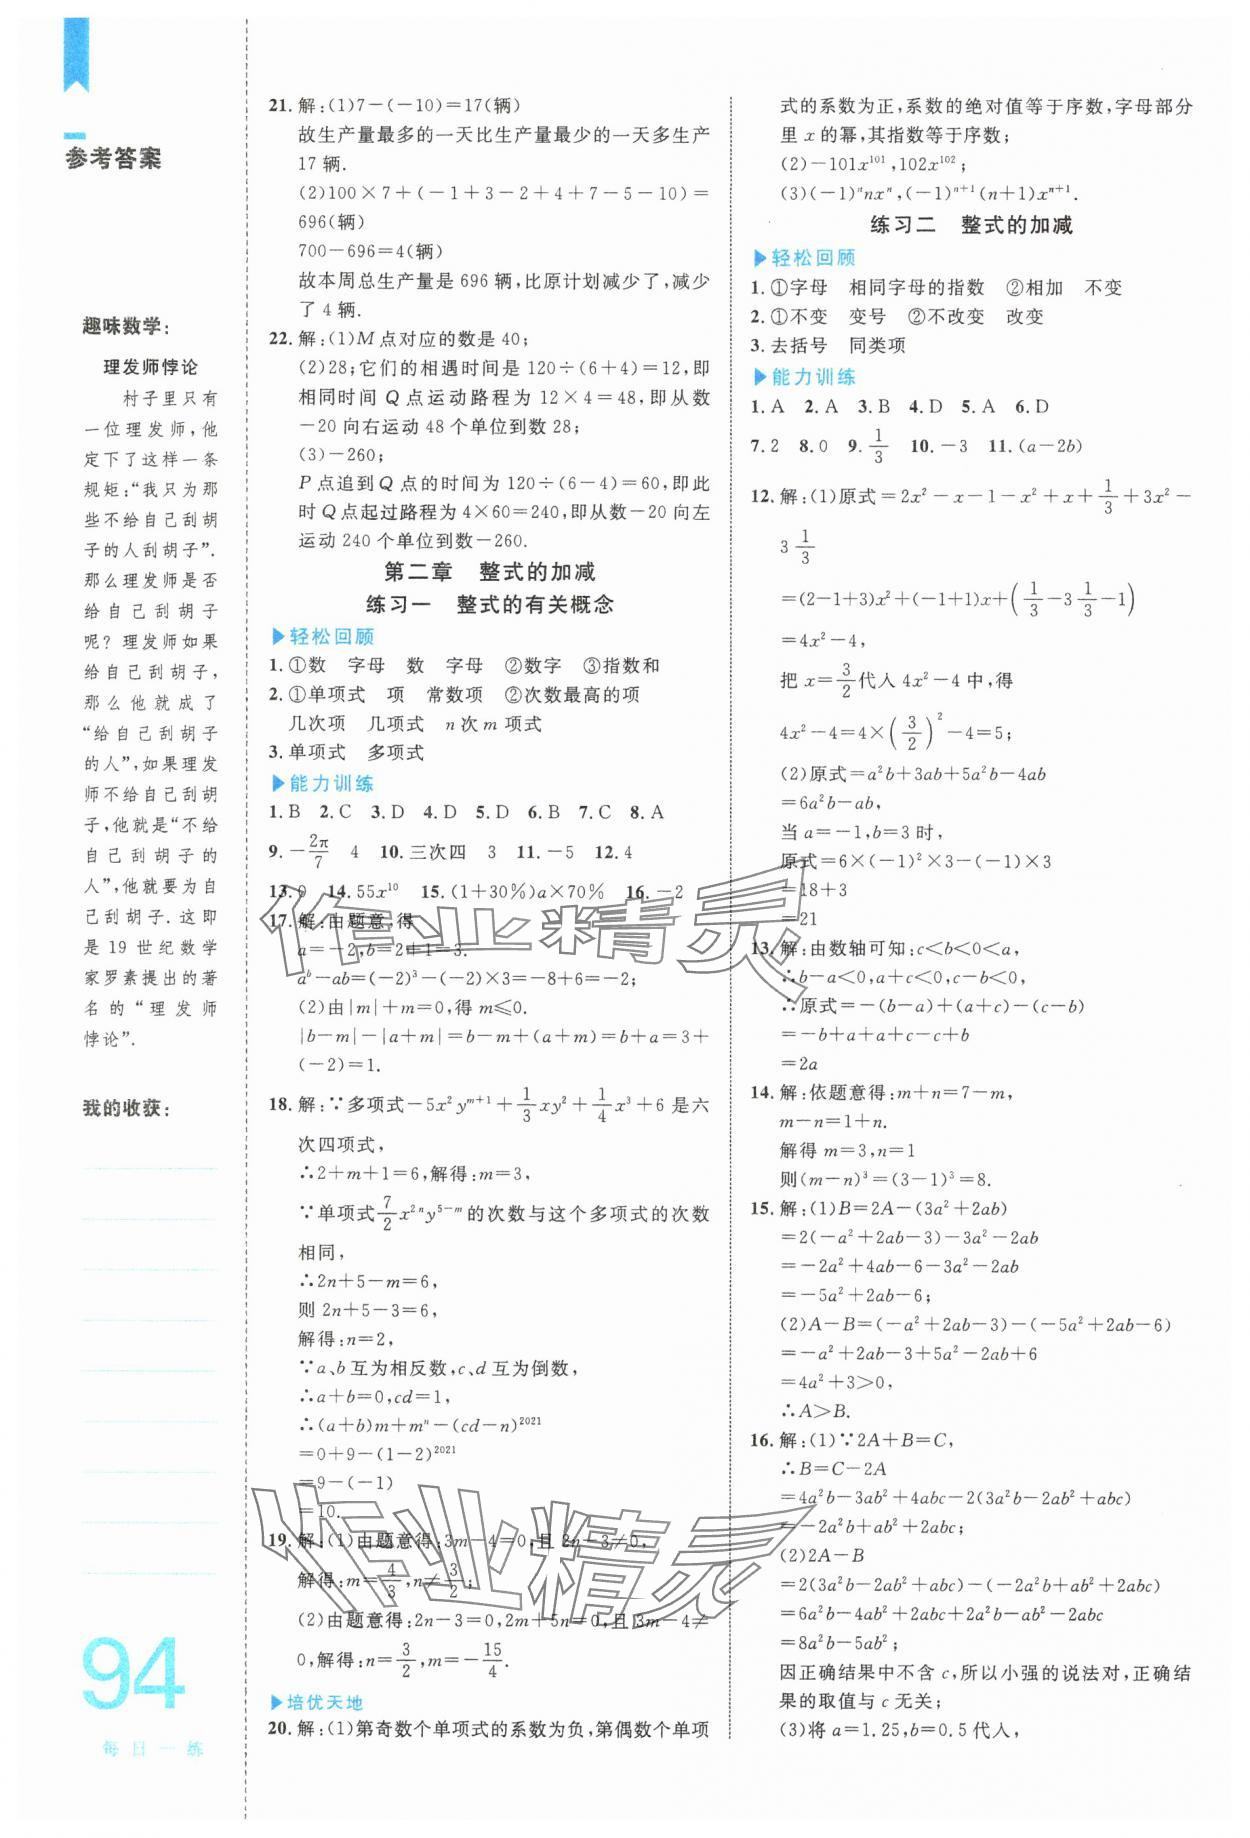 参考答案
趣味数学:
理发师悖论
村子里只有
一位理发师,他
定下了这样一条
规矩:“我只为那
些不给自己刮胡
子的人刮胡子”.
那么理发师是否
给自己刮胡子
呢?理发师如果
给自己刮胡子,
那么他就成了
“给自己刮胡子
的人”,如果理发
师不给自己刮胡
子,他就是“不给
自己刮胡子的
人”,他就要为自
己刮胡子.这即
是 19 世纪数学
家罗素提出的著
名的“理发师
悖论”.
我的收获:
94
每日一练
21. 解:(1)7-(-10)=17(辆)
故生产量最多的一天比生产量最少的一天多生产
17 辆.
(2)100×7+(-1+3-2+4+7-5-10)=
696(辆)
700-696=4(辆)
故本周总生产量是 696 辆,比原计划减少了,减少
了 4 辆.
22. 解:(1)M 点对应的数是 40;
(2)28;它们的相遇时间是 120÷(6+4)=12,即
相同时间 Q 点运动路程为 12×4=48,即从数
-20 向右运动 48 个单位到数 28;
(3)-260;
P 点追到 Q 点的时间为 120÷(6-4)=60,即此
时 Q 点起过路程为 4×60=240,即从数-20 向左
运动 240 个单位到数-260.
第二章 整式的加减
练习一 整式的有关概念
轻松回顾
1. ①数 字母 数 字母 ②数字 ③指数和
2. ①单项式 项 常数项 ②次数最高的项
几次项 几项式 n 次 m 项式
3. 单项式 多项式
能力训练
1. B 2. C 3. D 4. D 5. D 6. B 7. C 8. A
9. -2π/7 4 10. 三次四 3 11. -5 12. 4
13. 9 14. 55x¹⁰ 15. (1+30%)a×70% 16. -2
17. 解:由题意,得
a=-2,b=2+1=3.
aᵇ-ab=(-2)³-(-2)×3=-8+6=-2;
(2)由|m|+m=0,得 m≤0.
|b-m|-|a+m|=b-m+(a+m)=b+a=3+
(-2)=1.
18. 解:∵多项式-5x²yᵐ⁺¹+1/3xy²+1/4x³+6 是六
次四项式,
∴2+m+1=6,解得:m=3,
∵单项式7/2x²ⁿy⁵⁻ᵐ的次数与这个多项式的次数
相同,
∴2n+5-m=6,
则 2n+5-3=6,
解得:n=2,
∵a、b 互为相反数,c、d 互为倒数,
∴a+b=0,cd=1,
∴(a+b)m+mⁿ-(cd-n)²⁰²¹
=0+9-(1-2)²⁰²¹
=9-(-1)
=10.
19. 解:(1)由题意得:3m-4=0,且 2n-3≠0,
解得:m=4/3,n≠3/2;
(2)由题意得:2n-3=0,2m+5n=0,且 3m-4≠
0,解得:n=3/2,m=-15/4.
培优天地
20. 解:(1)第奇数个单项式的系数为负,第偶数个单项
式的系数为正,系数的绝对值等于序数,字母部分
里 x 的幂,其指数等于序数;
(2)-101x¹⁰¹,102x¹⁰²;
(3)(-1)ⁿnxⁿ,(-1)ⁿ⁺¹(n+1)xⁿ⁺¹.
练习二 整式的加减
轻松回顾
1. ①字母 相同字母的指数 ②相加 不变
2. ①不变 变号 ②不改变 改变
3. 去括号 同类项
能力训练
1. A 2. A 3. B 4. D 5. A 6. D
7. 2 8. 0 9. 1/3 10. -3 11. (a-2b)
12. 解:(1)原式=2x²-x-1-x²+x+1/3+3x²-
3 1/3
=(2-1+3)x²+(-1+1)x+(1/3-3 1/3-1)
=4x²-4,
把 x=3/2代入 4x²-4 中,得
4x²-4=4×(3/2)²-4=5;
(2)原式=a²b+3ab+5a²b-4ab
=6a²b-ab,
当 a=-1,b=3 时,
原式=6×(-1)²×3-(-1)×3
=18+3
=21
13. 解:由数轴可知:c<b<0<a,
∴b-a<0,a+c<0,c-b<0,
∴原式=-(b-a)+(a+c)-(c-b)
=-b+a+a+c-c+b
=2a
14. 解:依题意得:m+n=7-m,
m-n=1+n.
解得 m=3,n=1
则(m-n)³=(3-1)³=8.
15. 解:(1)B=2A-(3a²+2ab)
=2(-a²+2ab-3)-3a²-2ab
=-2a²+4ab-6-3a²-2ab
=-5a²+2ab-6;
(2)A-B=(-a²+2ab-3)-(-5a²+2ab-6)
=-a²+2ab-3+5a²-2ab+6
=4a²+3>0,
∴A>B.
16. 解:(1)∵2A+B=C,
∴B=C-2A
=4a²b-3ab²+4abc-2(3a²b-2ab²+abc)
=-2a²b+ab²+2abc;
(2)2A-B
=2(3a²b-2ab²+abc)-(-2a²b+ab²+2abc)
=6a²b-4ab²+2abc+2a²b-ab²-2abc
=8a²b-5ab²;
因正确结果中不含 c,所以小强的说法对,正确结
果的取值与 c 无关;
(3)将 a=1.25,b=0.5 代入,
作业精灵
作业精灵